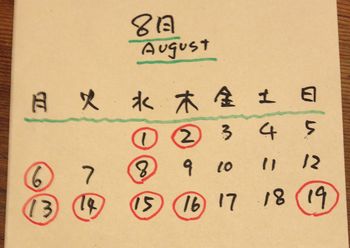 8日
August
月 火 水 木 金 土 日
1 2 3 4 5
6 7 8 9 10 11 12
13 14 15 16 17 18 19